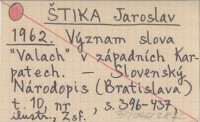 ŠTIKA Jaroslav
1962. Význam slova
"Valach" v západních Kar-
patech. — Slovenský
Národopis (Bratislava)
t. 10, nr , s. 396-437,
ilustr., Zsf.